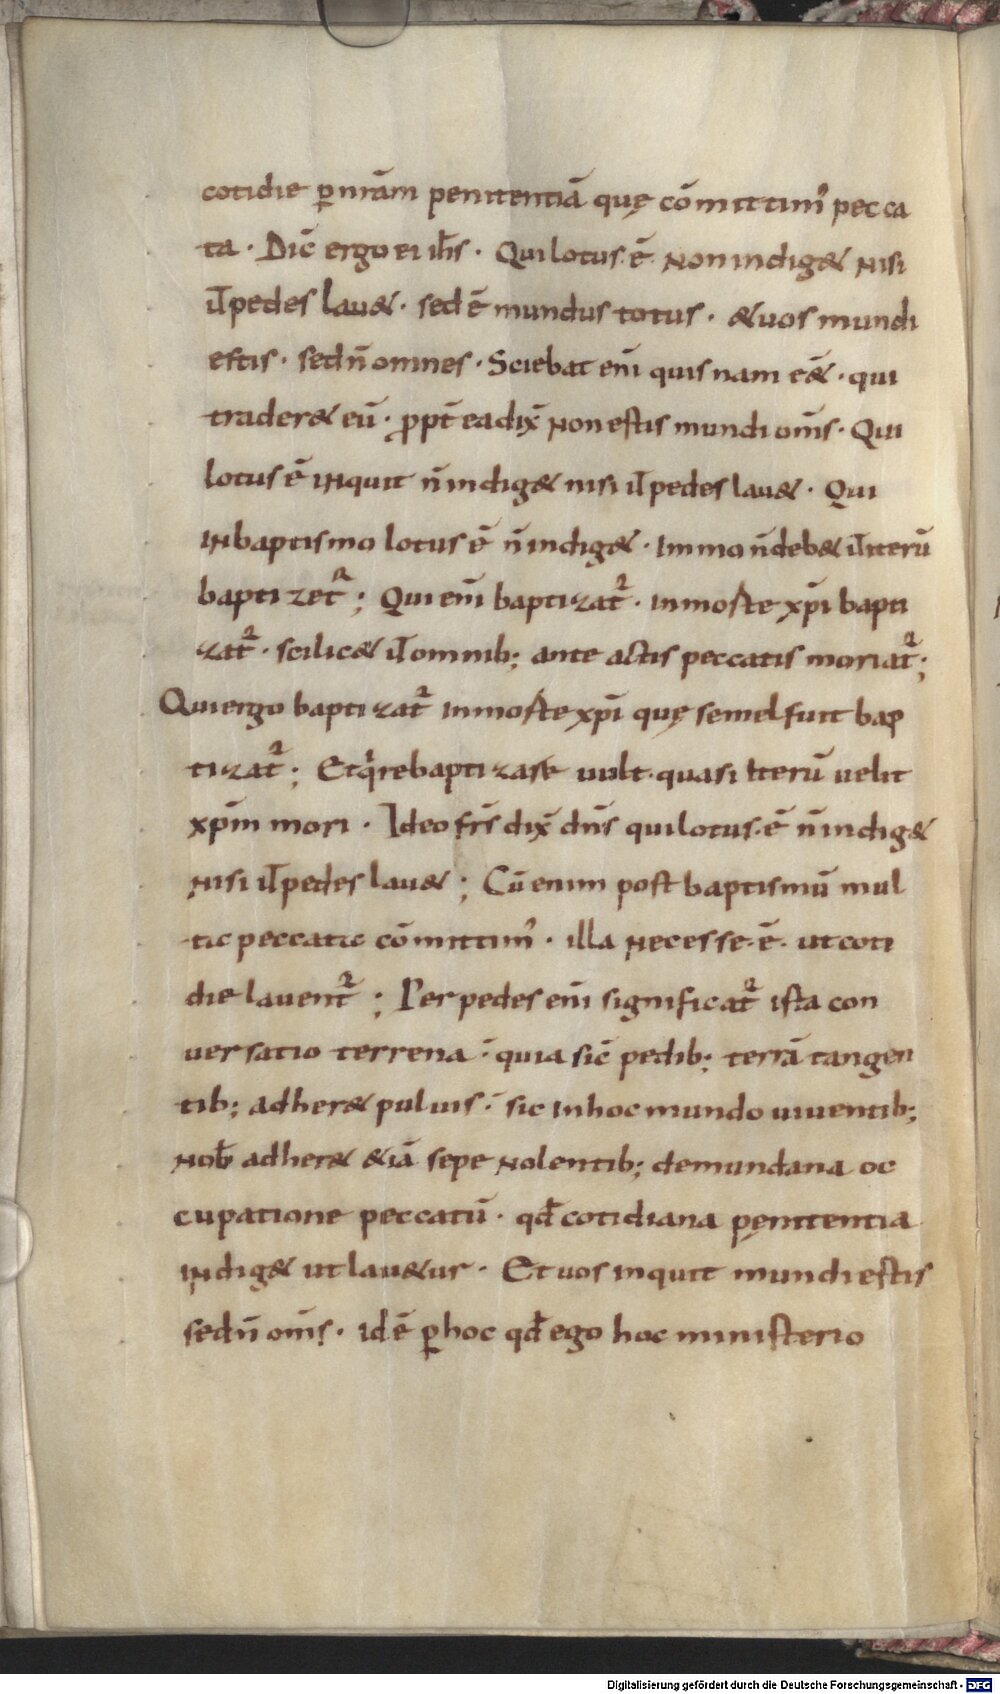 cotidie ꝑ nrām penitentiā quę cōmittimꝰ pecca
ta · Dic̄ ergo ei ih̄s · Qui lotus · ē · non indig& nisi
ut pedes lau& · sed ē mundus totus · & uos mundi
estis · sed n̄ omnes · Sciebat eni̅ quis nam e̅& · qui
trader& eū · ꝓpt̄ ea dix̄ non estis mundi om̅s · Qui
lotus ē inquit n̄ indig& nisi ut pedes lau& · Qui
in baptismo lotus ē n̄ indig& · Immo n̄ deb& ut iterū
baptizet᷑ ; Qui eni̅ baptizat᷑ · in morte xp̄i bapti
zat᷑ · scilic& ut omnib; ante actis peccatis moriat᷑ ;
Qui ergo baptizat᷑ in morte xp̄i quę semel fuit bap
tizat᷑ ; Et qͥ rebaptizare uult · quasi iterū uelit
xp̄m mori · Ideo fr̄s dix̄ dn̄s qui lotus · ē n̄ indig&
nisi ut pedes lau& ; Cū enim post baptismū mul
tis peccatis cōmittimꝰ · illa necesse · ē · ut coti
die lauent᷑ ; Per pedes eni̅ significat᷑ ista con
uersatio terrena · quia sic̄ pedib; terrā tangen
tib; adher& puluis · sic in hoc mundo uiuentib;
nob̄ adher& &iā sepe nolentib; de mundana oc
cupatione peccatū · qd̄ cotidiana pęnitentia
indig& ut lau&ur · Et uos inquit mundi estis
sed n̄ om̅s · id ē ꝑ hoc qd̄ ego hoc ministerio
Digitalisierung gefördert durch die Deutsche Forschungsgemeinschaft - DFG